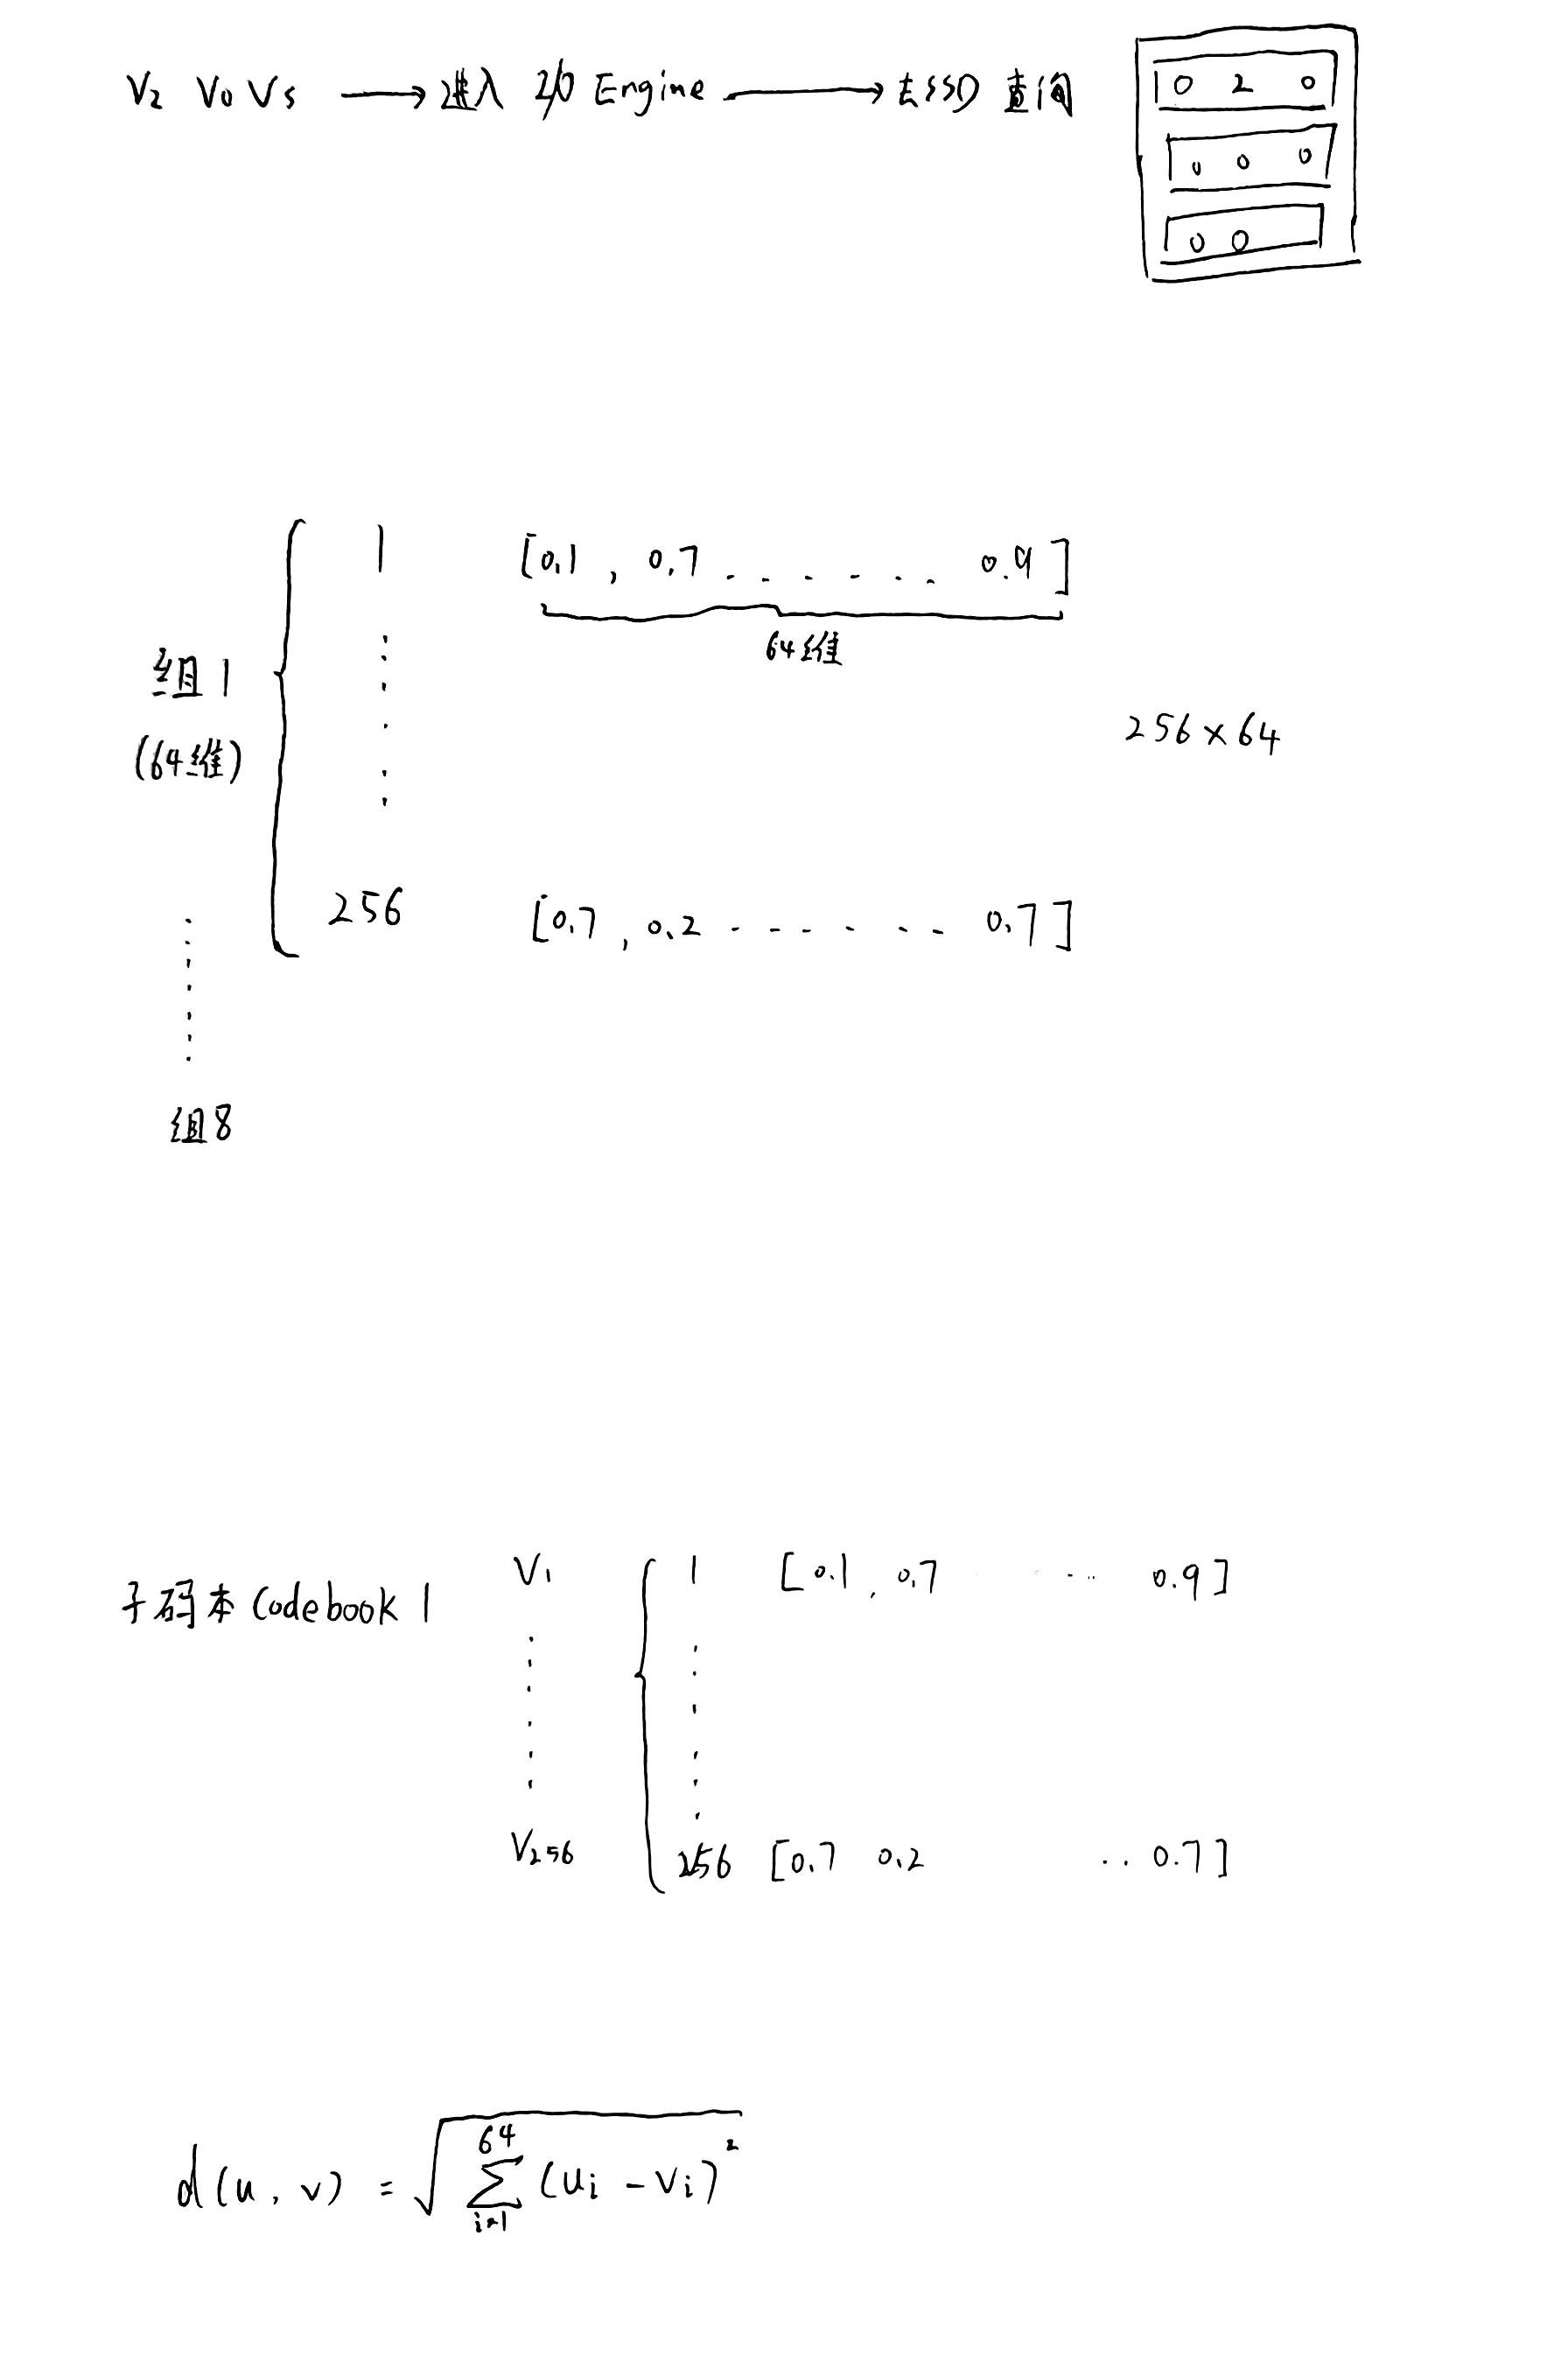 V₂ V₀ V₅ → 进入 I/O Engine → 去SSD 查询
0 2 0
0 0 0
0 0
1 [0.1 , 0.7 . . . . . . . 0.9]
64维
组1
(64维)
256×64
256 [0.7 , 0.2 . . . . . . . 0.7]
组8
子码本 Codebook 1
V₁ 1 [0.1 , 0.7 ... 0.9]
V₂₅₆ 256 [0.7 0.2 .. 0.7]
d(u, v) = √∑_{i=1}^{64} (uᵢ - vᵢ)²